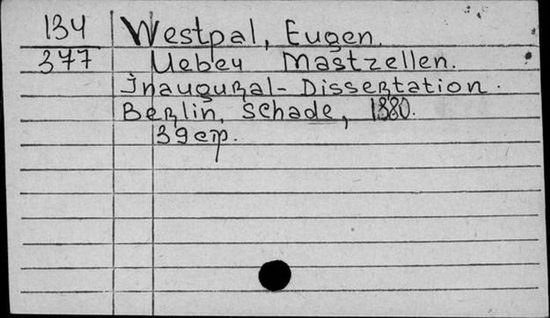 134 Westpal, Eugen.
377 Uebey Mastzellen.
Inaugural-Dissertation.
Berlin, Schade, 1880.
39 стр.